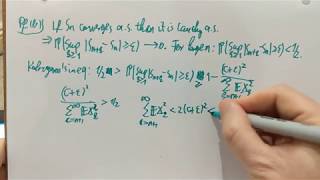 If Sn converges a.s. then it is Cauchy a.s.
⇒ P(sup_{k≥1} |S_{n+k} − S_n| ≥ ε) → 0. For large n: P(sup_{k≥1} |S_{n+k} − S_n| ≥ ε) < 1/2.
Kolmogorov's ineq: 1/2 > P(sup_{k≥1} |S_{n+k} − S_n| ≥ ε) ≥ 1 − (c+ε)² / Σ_{k=n+1}^∞ E X_k²
(c+ε)² / Σ_{k=n+1}^∞ E X_k² > 1/2 Σ_{k=n+1}^∞ E X_k² < 2(c+ε)² <